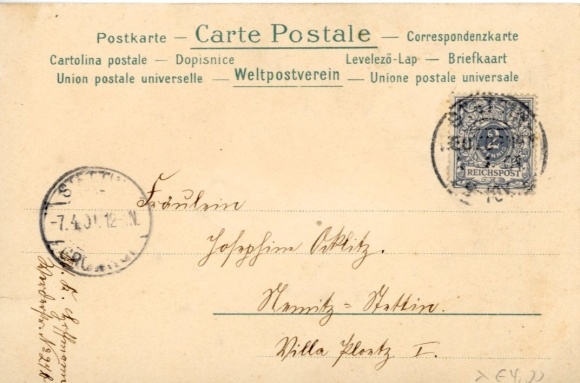 Postkarte – Carte Postale – Correspondenzkarte
Cartolina postale – Dopisnice Levelező-Lap – Briefkaart
Union postale universelle – Weltpostverein – Unione postale universale
2
REICHSPOST
STETTIN
-7.4.01.12-
Fräulein
Josephine
Nemitz = Stettin.
Villa Ploetz I.